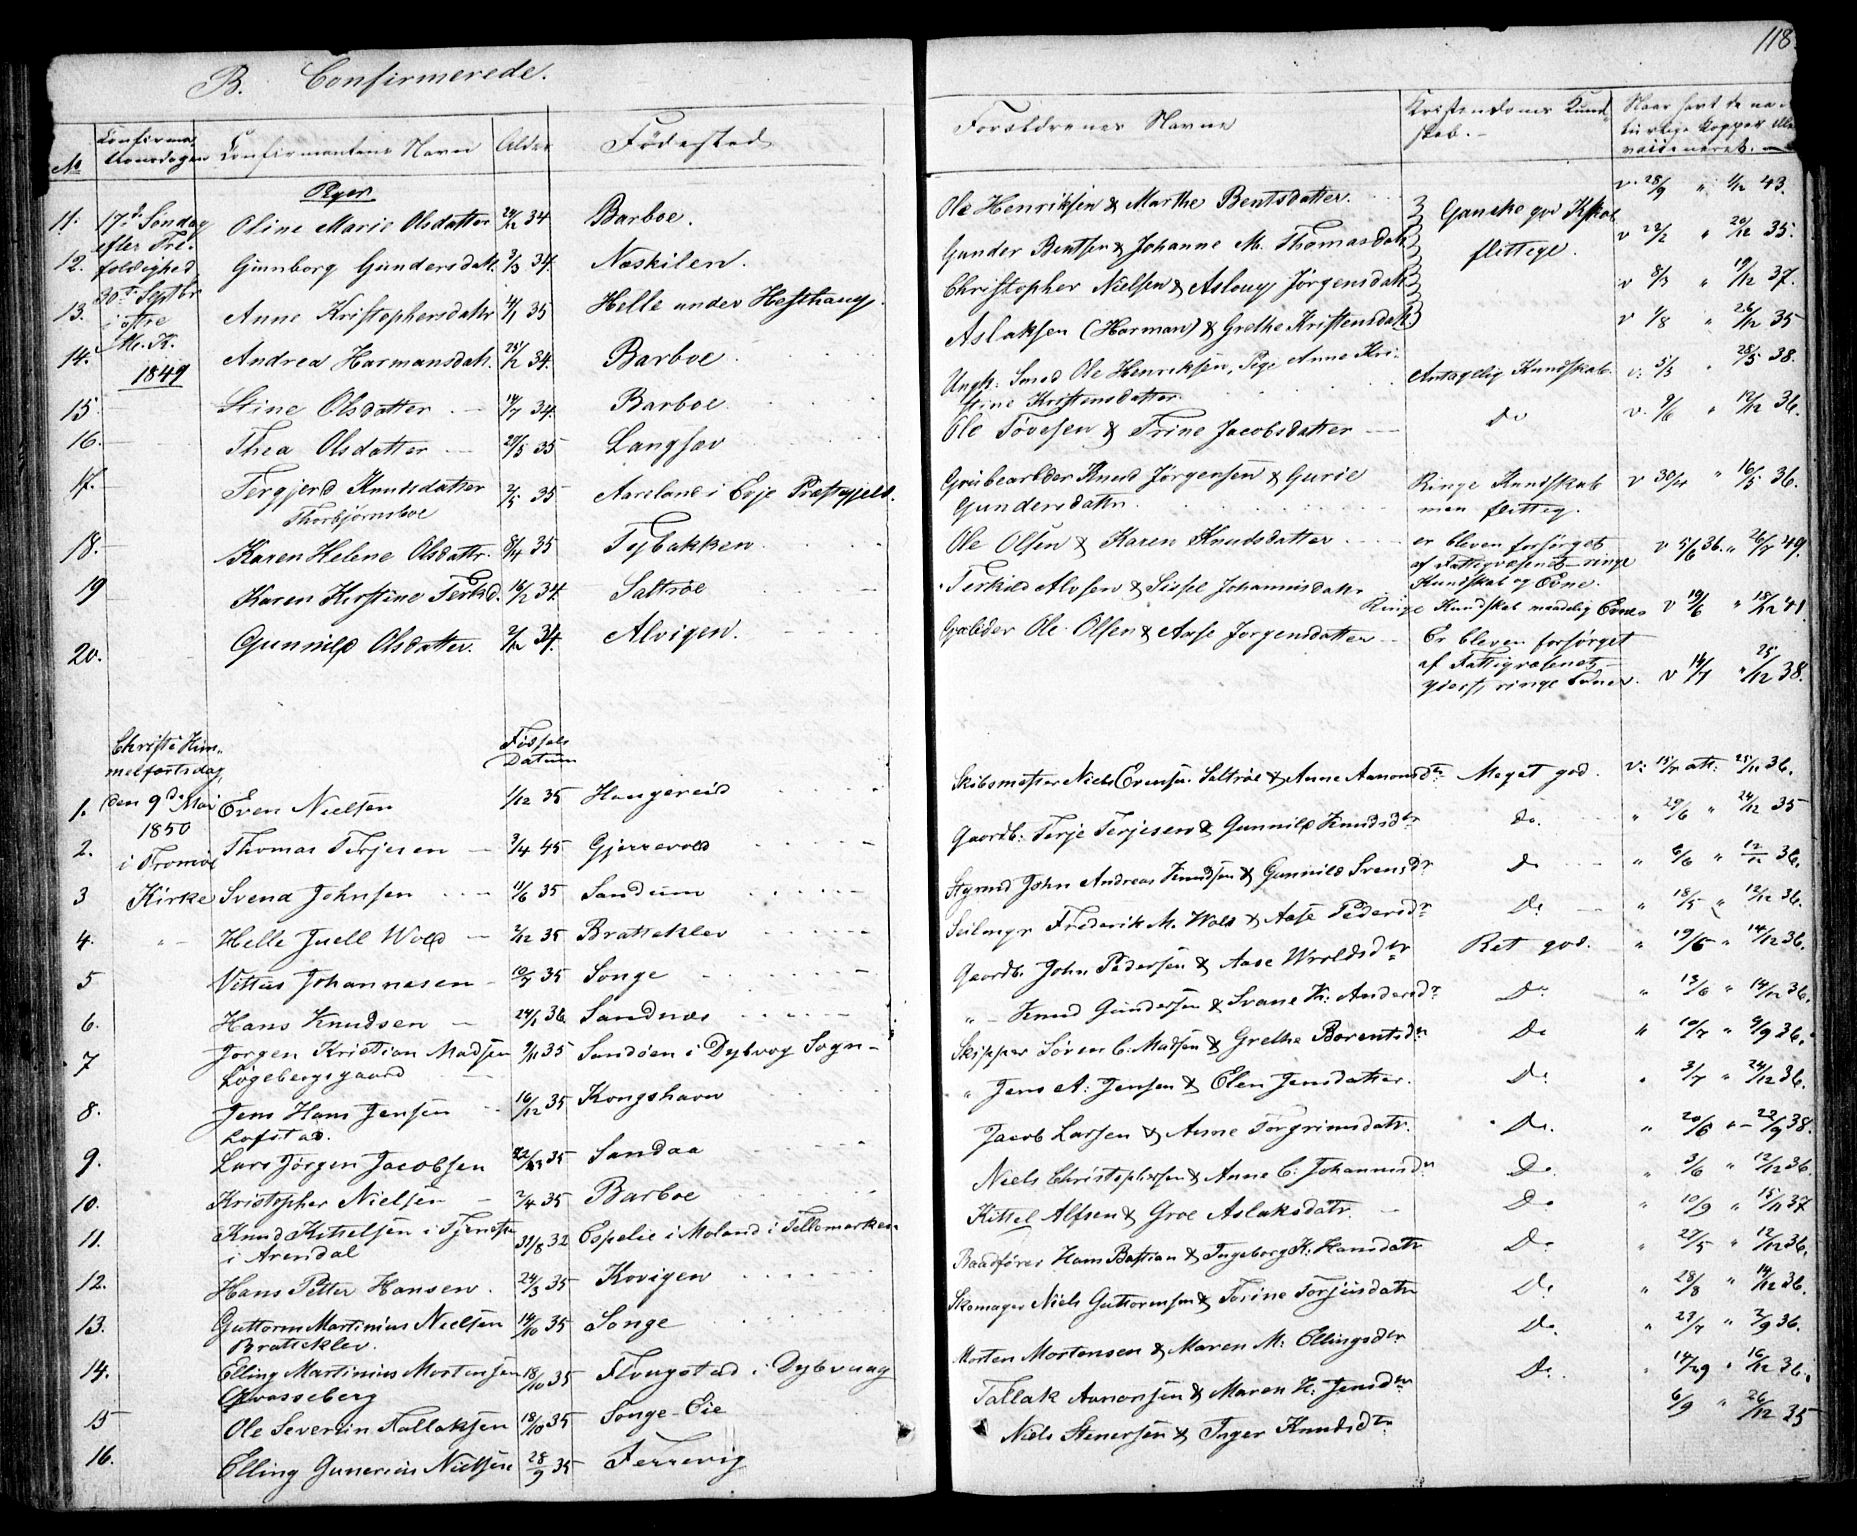 118.
B. Confirmerede.
No Confirmationsdagen Confirmantens Navn Alder Fødested Forældrenes Navne Kristendoms Kundskab. Naar havt de naturlige Kopper eller vaccineret.
Piger
11. 17de Søndag Oline Marie Olsdatter 34 Barboe. Ole Henriksen & Marthe Bentsdatter. Ganske god Kskab v. 28/9 " 1/12 43.
efter Tre-
12. foldighed Gunborg Gundersdatt. 3/3 34. Næskilen. Gunder Bentsen & Johanne M. Thomasdatt flittige. v 22/2 " 20/12 35.
30te Septbr
13. i østre Anne Kristophersdatter 35 Helle under Hesthaug. Christopher Nielsen & Aslaug Jørgensdatt v 8/3 " 19/12 37.
M. K.
14. 1849 Andrea Harmansdatt. 34. Barboe. Aslaksen (Harman) & Grethe Kristensdatt v 1/8 " 26/12 35
15 Stine Olsdatter 14/7 34. Barboe Ungk. Smed Ole Henriksen, Pige Anne Kri- Antagelig Kundskab v. 5/3 " 28/5 38.
stine Kristensdatter
16. Thea Olsdatter 29/5 35 Langsæv Ole Tøvesen & Trine Jacobsdatter do v. 9/6 " 12/12 36.
17. Tergjerd Knudsdatter 2/5 35 Aareland i Evje Præstegjeld. Grubearbeider Knud Jørgensen & Gurie Ringe Kundskab v 30/11 " 16/5 36.
Thorbjørnsboe Gundersdatter. men flittig.
18. Karen Helene Olsdattr. 8/4 35 Tybakken Ole Olsen & Karen Knudsdatter er bleven forsørget v 5/6 36. " 26/7 49.
af Fattigvæsenet ringe
19 Karen Kirstine Terkd. 16/2 34. Saltrøe Terkild Alvsen & Sissel Johannisdatr Kundskab og Evne.
Ringe Kundskab maadelig Evner v 19/6 " 18/12 41.
20. Gunnild Olsdatter. 34. Alvigen. Ole Olsen & Aase Jørgensdatter Er bleven forsørget
af Fattigvæsenet v 14/7 " 25/12 38.
ringe Evner.
Christi Him- Fødsels
melfartsdag, Datum
1. den 9de Mai Even Nielsen 1/12 35 Haugereid Skibsmester Niels Evensen Saltrøe & Anne Aanonsdtr Meget god. v: 15/7 att: 25/11 36.
1850
2. i Tromø Thomas Terjesen 3/4 45 Gjerrevold Gaardb. Terje Terjesen & Gunnild Knudsdtr Do. " 29/6 " 24/12 35
3 Kirke Svend Johnsen 11/6 35 Sandum Styrmd John Andreas Knudsen & Gunnild Svensdtr Do " 6/6 " 12/12 36.
4. Helle Juell Wold 2/12 35 Bratteklev Seilmgr Frederik M. Wold & Aase Pedersdtr Do " 18/5 " 12/12 36.
5 Vittus Johannesen 10/7 35 Songe Gaardb. John Pedersen & Aase Wroldsdtr Ret god. " 19/6 " 14/12 36.
6. Hans Knudsen 24/1 36. Sandnæs " – Knud Gundersen & Svane K. Andersdtr Do " 13/6 " 14/12 36.
7 Jørgen Kristian Madsen 9/11 35 Sandøen i Dybvog Sogn Skipper Søren C. Madsen & Grethe Berentsdtr Do " 10/7 " 9/9 36.
Løgebergsgaard
8. Jens Hans Jensen 16/12 35 Kongshavn " Jens A. Jensen & Elen Jensdatter. Do. " 3/7 " 24/12 36.
Lofstad.
9. Lars Jørgen Jacobsen 35 Sandaa Jacob Larsen & Anne Torgrimsdatr. Do. " 20/6 " – 22/9 38.
10. Kristopher Nielsen 2/4 35 Barboe Niels Christophersen & Anne C. Johannisdtr Do. " 3/6 " 12/12 36.
11. Knud Kittelsen i Tjeneste 31/8 32 Espelie i Moland i Tellemarken Kittel Alfsen & Groe Aslaksdatr. Do " 10/9 " 15/11 37
i Arendal
12. Hans Petter Hansen. 24/3 35 Kovigen Baadfører Hans Bastian & Ingeborg K. Hansdatr Do. " 27/5 " 12/12 36.
13. Guttorm Martinius Nielsen 14/10 35 Songe Skomager Niels Guttormsen & Torine Torjusdatr Do. " 28/8 " 14/12 36.
Bratteklev.
14. Elling Martinius Mortensen 18/10 35 Flougstad i Dybvaag Morten Mortensen & Maren M. Ellingsdtr Do. " 23/7 " 2/9 36.
Qvasseberg
15 Ole Severin Tallaksen 18/10 35 Songe-Eie Tallak Aanonsen & Maren K. Jensdtr Do. " 14/9 " 16/12 36.
16. Elling Gunerius Nielsen 28/9 35 Færrevig Niels Stenersen & Inger Knudsdtr 6/9 " 26/12 35